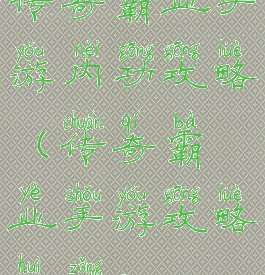 传奇霸业手
yóu nèi gōng gōng lüè
游内功攻略
chuán qí bà
（传奇霸
yè shǒu yóu gōng lüè
业手游攻略
huì zàng